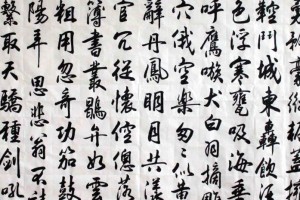 鞚鬥城東轟飲酒
色浮寒甕吸海垂
呼鷹嗾犬白羽摘雕
穴俄空樂匆匆似黃
辭丹鳳明月共漾
官冗從懷倥傯落
簿書叢鶡弁如雲
粗用忽奇功笳鼓
陽弄思悲翁不請
繫取天驕種劍吼